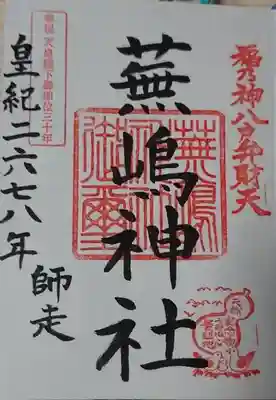 福乃神八臼弁財天
蕪嶋神社
奉祝 天皇陛下御即位三十年
皇紀二六七八年
師走